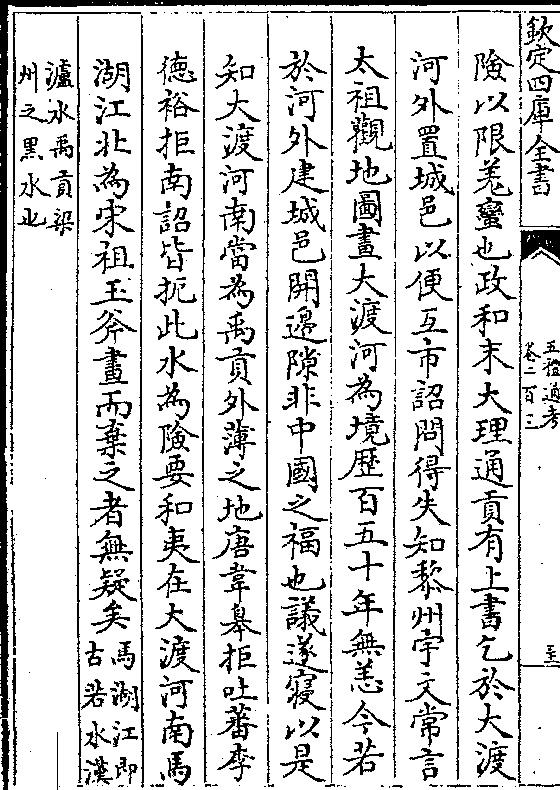 欽定四庫全書
五禮通考
卷二百三
至
險以限羌蠻也政和末大理通貢有上書乞於大渡
河外置城邑以便互市詔問得失知黎州宇文常言
太祖觀地圖畫大渡河為境歴百五十年無恙今若
於河外建城邑開邊隙非中國之福也議遂寢以是
知大渡河南當為禹貢外薄之地唐韋臯拒吐蕃李
德裕拒南詔皆扼此水為險要和夷在大渡河南馬
湖江北為宋祖玉斧畫而棄之者無疑矣
馬湖江即
古若水漢
瀘水禹貢梁
州之黑水也